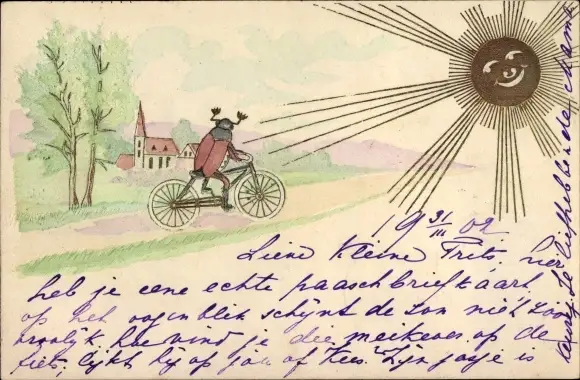 19 31/III 02
Lieve kleine Frits, hier
heb je eene echte paaschbriefkaart,
op het oogenblik schijnt de zon niet zoo
vroolijk. hoe vind je die meikever op de
fiets, lijkt hij op jou of Kees. Zijn jasje is
je liefhebbende Mama